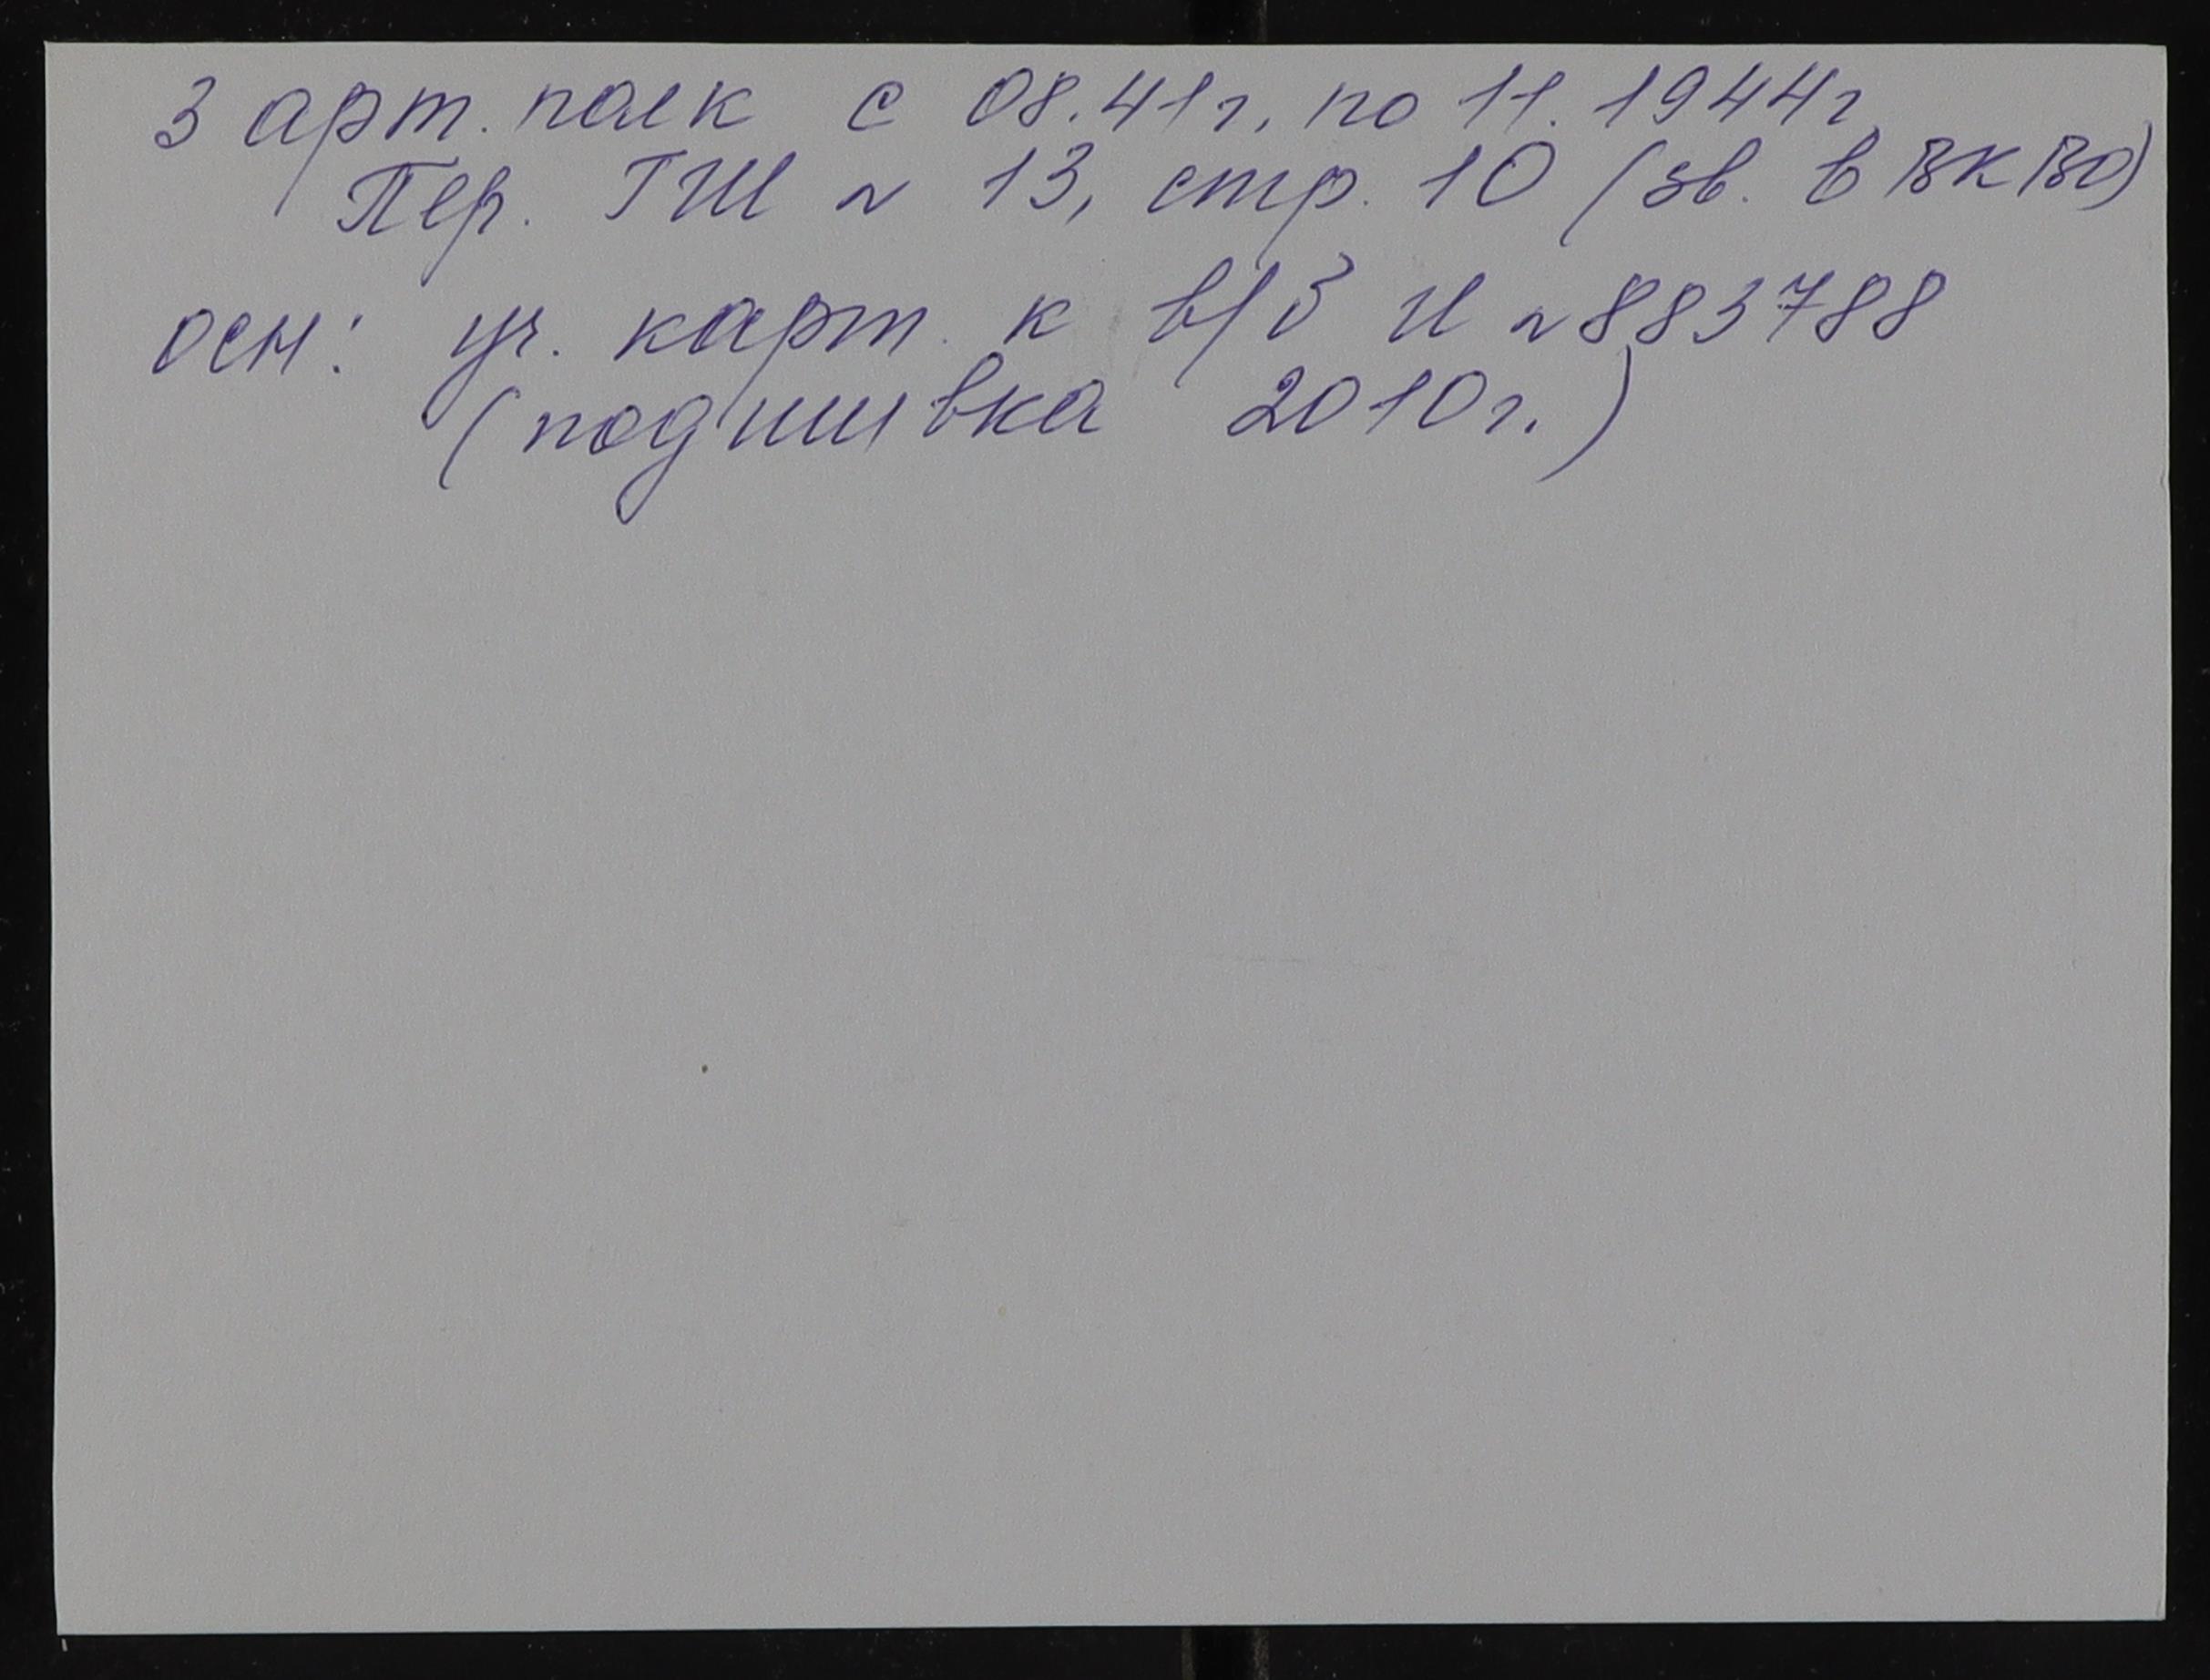 3 арт. полк с 08.41г, по 11.1944г
Пер. ГШ № 13, стр. 10 (зв. в ВКВО)
осн: уч. карт. к в/з И №883788
(подшивка 2010г.)